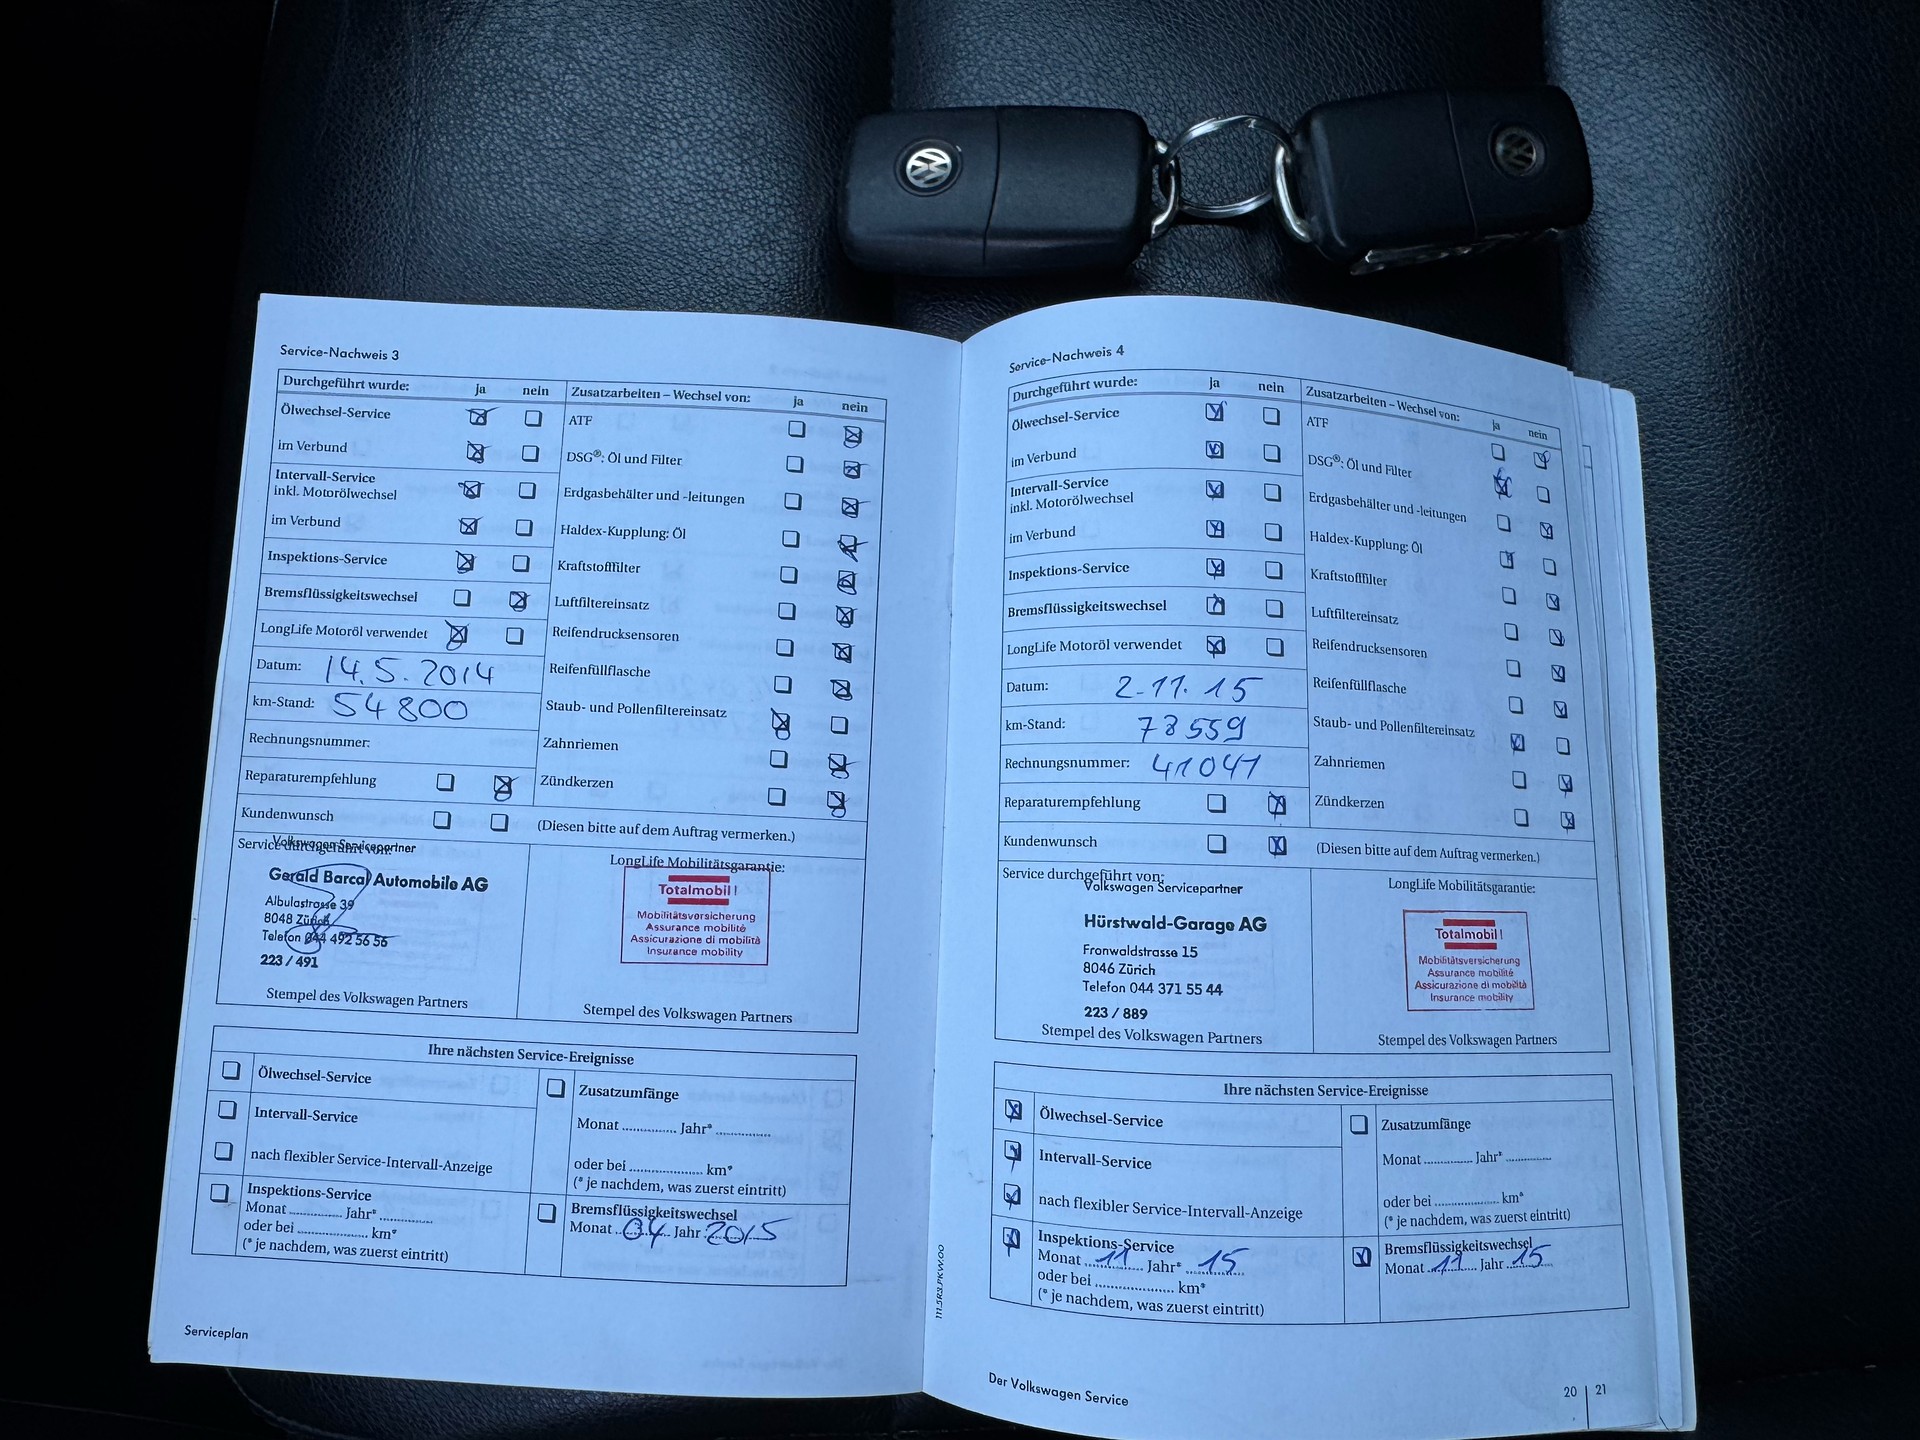 Service-Nachweis 3
Durchgeführt wurde: ja nein
Zusatzarbeiten – Wechsel von: ja nein
Ölwechsel-Service
im Verbund
Intervall-Service
inkl. Motorölwechsel
im Verbund
Inspektions-Service
Bremsflüssigkeitswechsel
LongLife Motoröl verwendet
Datum: 14.5.2014
km-Stand: 54800
Rechnungsnummer:
Reparaturempfehlung
Kundenwunsch
ATF
DSG®: Öl und Filter
Erdgasbehälter und -leitungen
Haldex-Kupplung: Öl
Kraftstofffilter
Luftfiltereinsatz
Reifendrucksensoren
Reifenfüllflasche
Staub- und Pollenfiltereinsatz
Zahnriemen
Zündkerzen
(Diesen bitte auf dem Auftrag vermerken.)
Service durchgeführt von:
Volkswagen Servicepartner
Gerald Barcal Automobile AG
Albulastrasse 39
8048 Zürich
Telefon 044 492 56 56
223 / 491
Stempel des Volkswagen Partners
LongLife Mobilitätsgarantie:
Totalmobil!
Mobilitätsversicherung
Assurance mobilité
Assicurazione di mobilità
Insurance mobility
Stempel des Volkswagen Partners
Ihre nächsten Service-Ereignisse
Ölwechsel-Service
Intervall-Service
nach flexibler Service-Intervall-Anzeige
Inspektions-Service
Monat ............ Jahr* ............
oder bei ............ km*
(* je nachdem, was zuerst eintritt)
Zusatzumfänge
Monat ............ Jahr* ............
oder bei ............ km*
(* je nachdem, was zuerst eintritt)
Bremsflüssigkeitswechsel
Monat 04 Jahr 2015
Serviceplan
111.5R3.PKW.00
Service-Nachweis 4
Durchgeführt wurde: ja nein
Zusatzarbeiten – Wechsel von: ja nein
Ölwechsel-Service
im Verbund
Intervall-Service
inkl. Motorölwechsel
im Verbund
Inspektions-Service
Bremsflüssigkeitswechsel
LongLife Motoröl verwendet
Datum: 2.11.15
km-Stand: 78559
Rechnungsnummer: 41041
Reparaturempfehlung
Kundenwunsch
ATF
DSG®: Öl und Filter
Erdgasbehälter und -leitungen
Haldex-Kupplung: Öl
Kraftstofffilter
Luftfiltereinsatz
Reifendrucksensoren
Reifenfüllflasche
Staub- und Pollenfiltereinsatz
Zahnriemen
Zündkerzen
(Diesen bitte auf dem Auftrag vermerken.)
Service durchgeführt von:
Volkswagen Servicepartner
Hürstwald-Garage AG
Fronwaldstrasse 15
8046 Zürich
Telefon 044 371 55 44
223 / 889
Stempel des Volkswagen Partners
LongLife Mobilitätsgarantie:
Totalmobil!
Mobilitätsversicherung
Assurance mobilité
Assicurazione di mobilità
Insurance mobility
Stempel des Volkswagen Partners
Ihre nächsten Service-Ereignisse
Ölwechsel-Service
Intervall-Service
nach flexibler Service-Intervall-Anzeige
Inspektions-Service
Monat 11 Jahr* 15
oder bei ............ km*
(* je nachdem, was zuerst eintritt)
Zusatzumfänge
Monat ............ Jahr* ............
oder bei ............ km*
(* je nachdem, was zuerst eintritt)
Bremsflüssigkeitswechsel
Monat 11 Jahr 15
Der Volkswagen Service
20 | 21